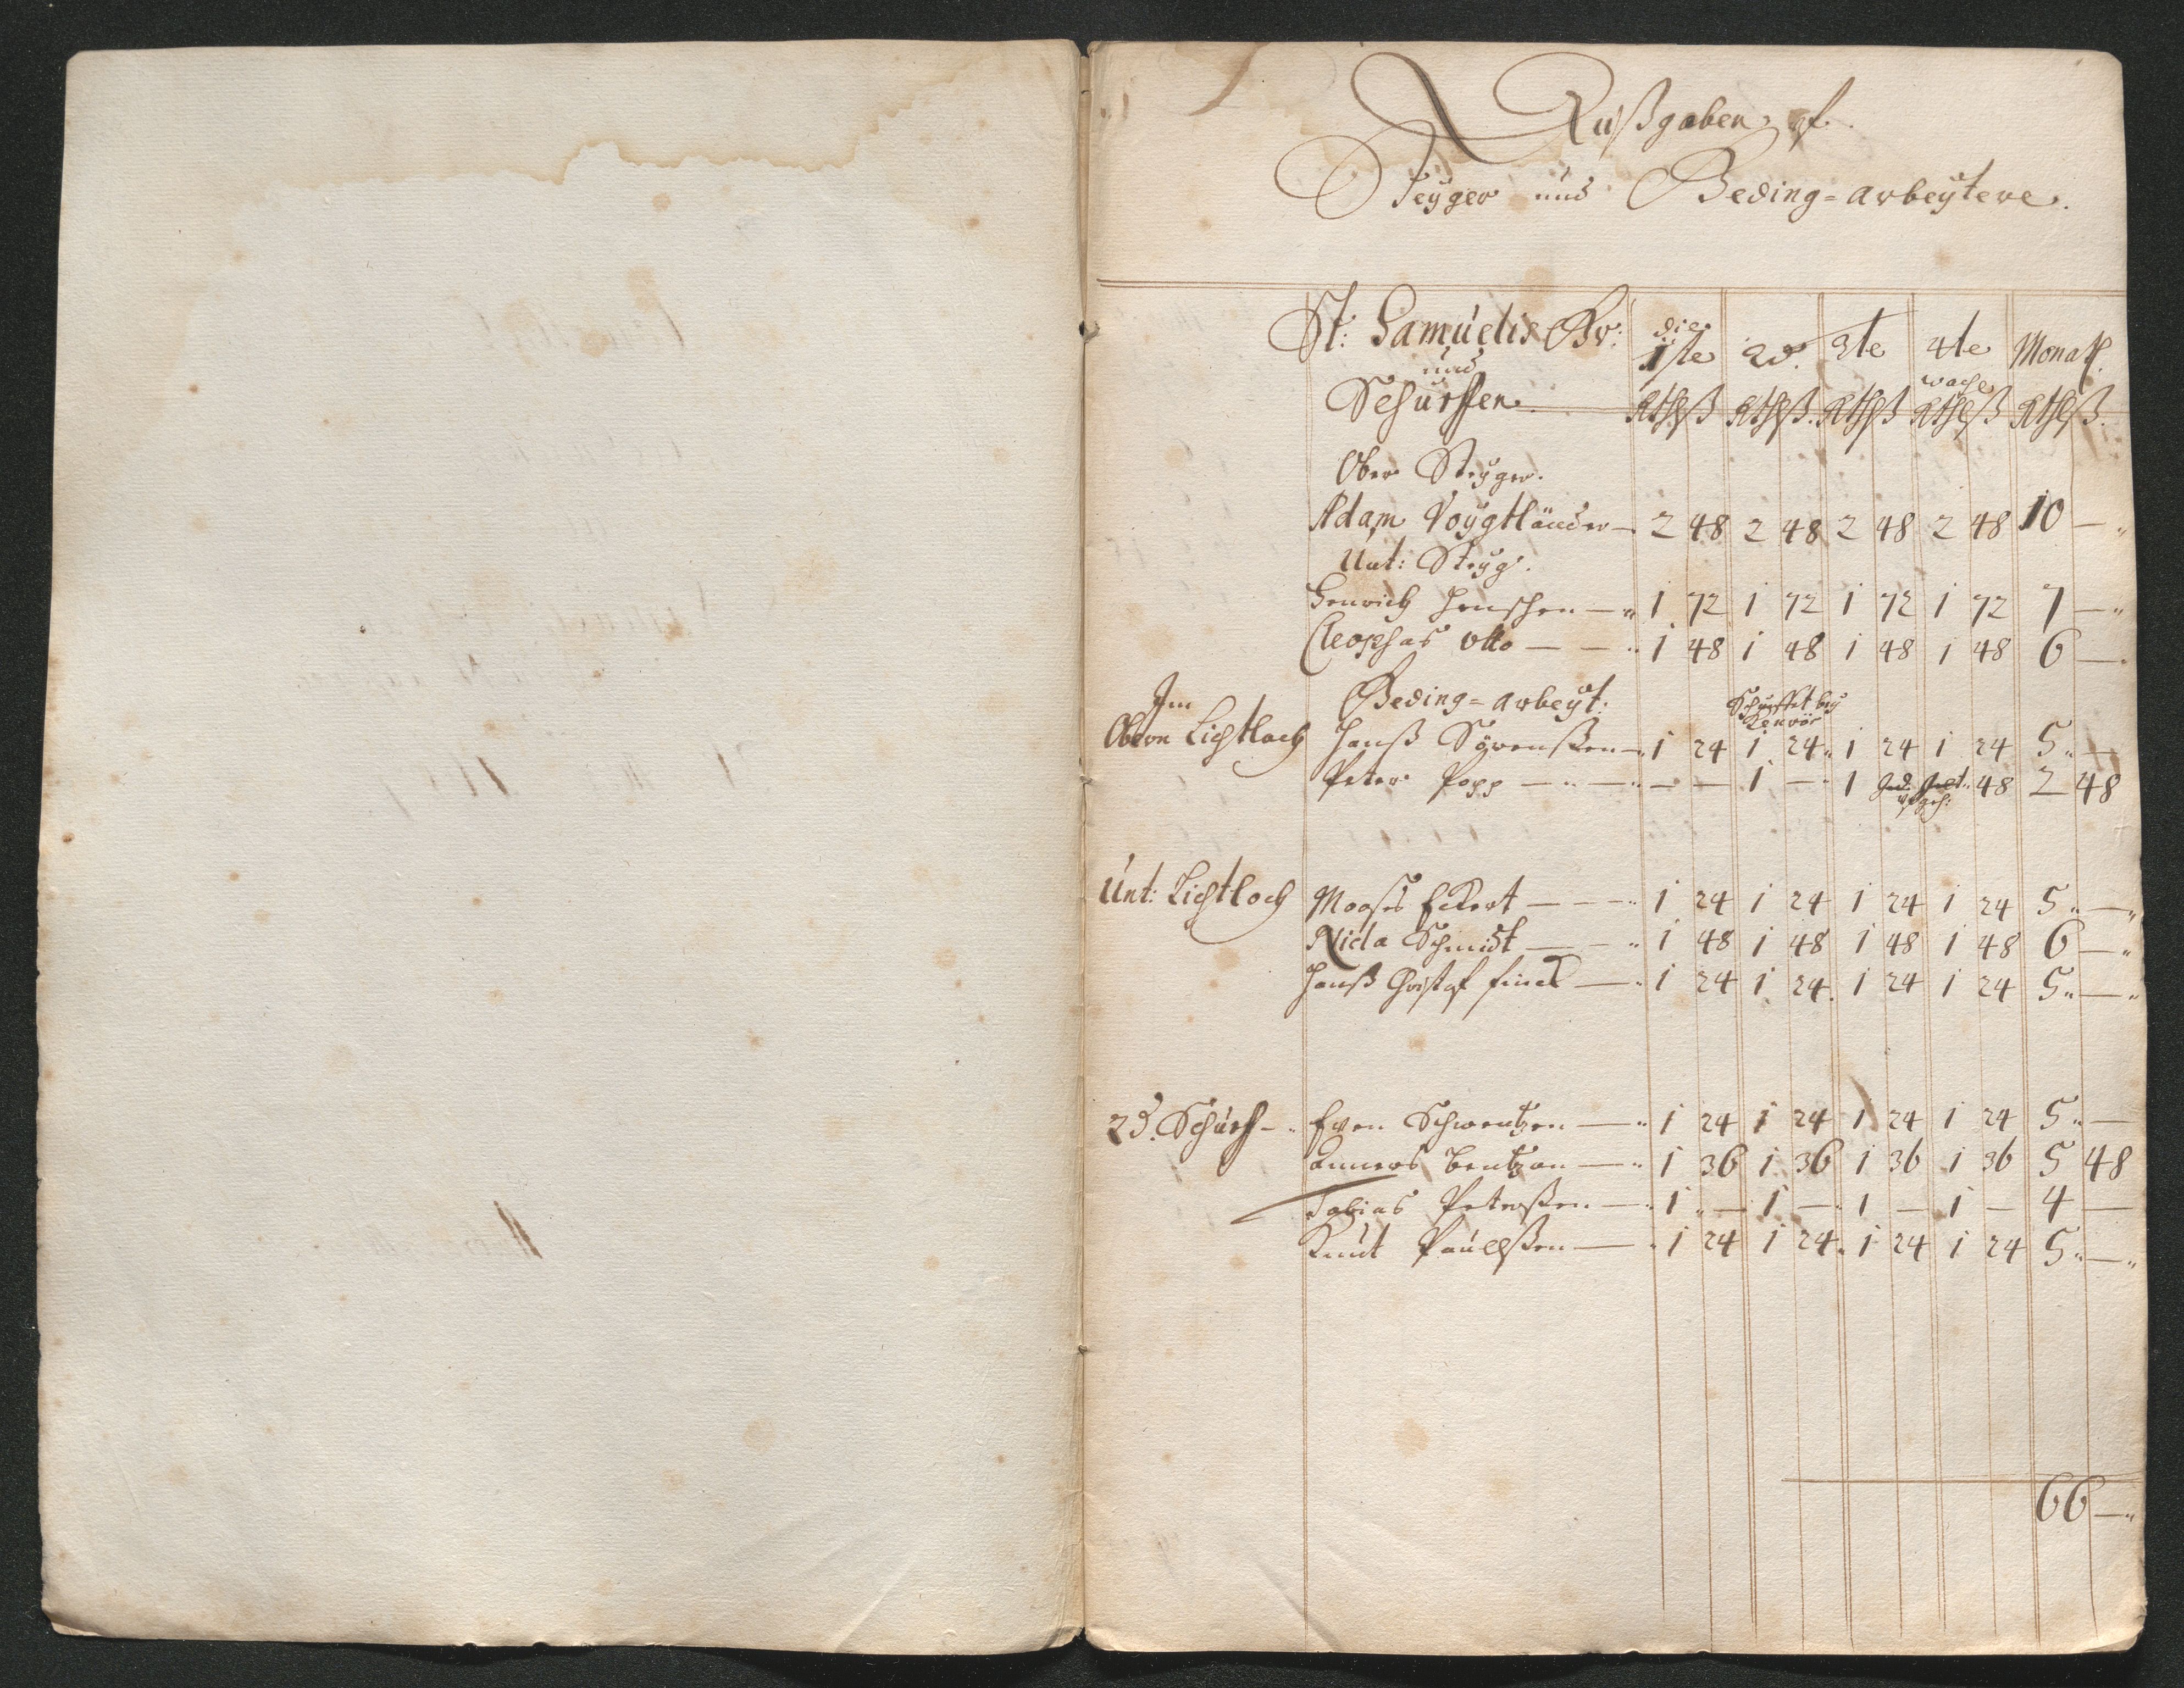 Außgaben, uf.
Steyger und Beding=arbeytere.
St: Samuelis Gr: die 1ste 2d. 3te 4te Monatl.
und
Schurffen. woche
Rthlß Rthlß. Rthlß Rthlß Rthlß.
Ober Steyger.
Adam Voygtländer — 2 48 2 48 2 48 2 48 10 — "
Unt: Steyg.
Henrich Henschen — " 1 72 1 72 1 72 1 72 7 — "
Cleophas Otto — — " 1 48 1 48 1 48 1 48 6 — "
Im Beding=arbeyt: Schurffet bey
Obern Lichtloch Hanß Sörenßen — " 1 24 1 24 " 1 24 1 24 5 " —
Peter Popp — " — " — — 1 — " 1 48 2 48
Unt: Lichtloch Moases Eckert — — — " 1 24 1 24 1 24 1 24 5 " — "
Nicla Schmidt — — " 1 48 1 48 1 48 1 48 6 — "
Hanß Christof Finck — " 1 24 1 24. 1 24 1 24 5 " — "
2d. Schürf — " Even Schwentzen — " 1 24 1 24 1 24 1 24 5 " —
Anners Bentzon — " 1 36 1 36 1 36 1 36 5 48
Tobias Peterßen — " 1 " — 1 — " 1 — 1 — 4 —
Knut Paulßen — " 1 24 1 24 " 1 24 1 24 5 " — "
66 — "